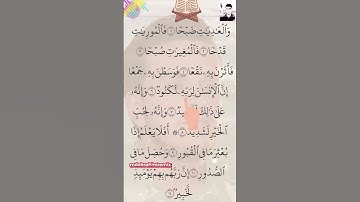 وَٱلْعَٰدِيَٰتِ ضَبْحًا ١ فَٱلْمُورِيَٰتِ
قَدْحًا ٢ فَٱلْمُغِيرَٰتِ صُبْحًا ٣
فَأَثَرْنَ بِهِۦ نَقْعًا ٤ فَوَسَطْنَ بِهِۦ جَمْعًا ٥
إِنَّ ٱلْإِنسَٰنَ لِرَبِّهِۦ لَكَنُودٌ ٦ وَإِنَّهُۥ
عَلَىٰ ذَٰلِكَ ٧ وَإِنَّهُۥ لِحُبِّ
ٱلْخَيْرِ لَشَدِيدٌ ٨ ۞ أَفَلَا يَعْلَمُ إِذَا
بُعْثِرَ مَا فِى ٱلْقُبُورِ ٩ وَحُصِّلَ مَا فِى
ٱلصُّدُورِ ١٠ إِنَّ رَبَّهُم بِهِمْ يَوْمَئِذٍ
لَّخَبِيرٌۢ ١١